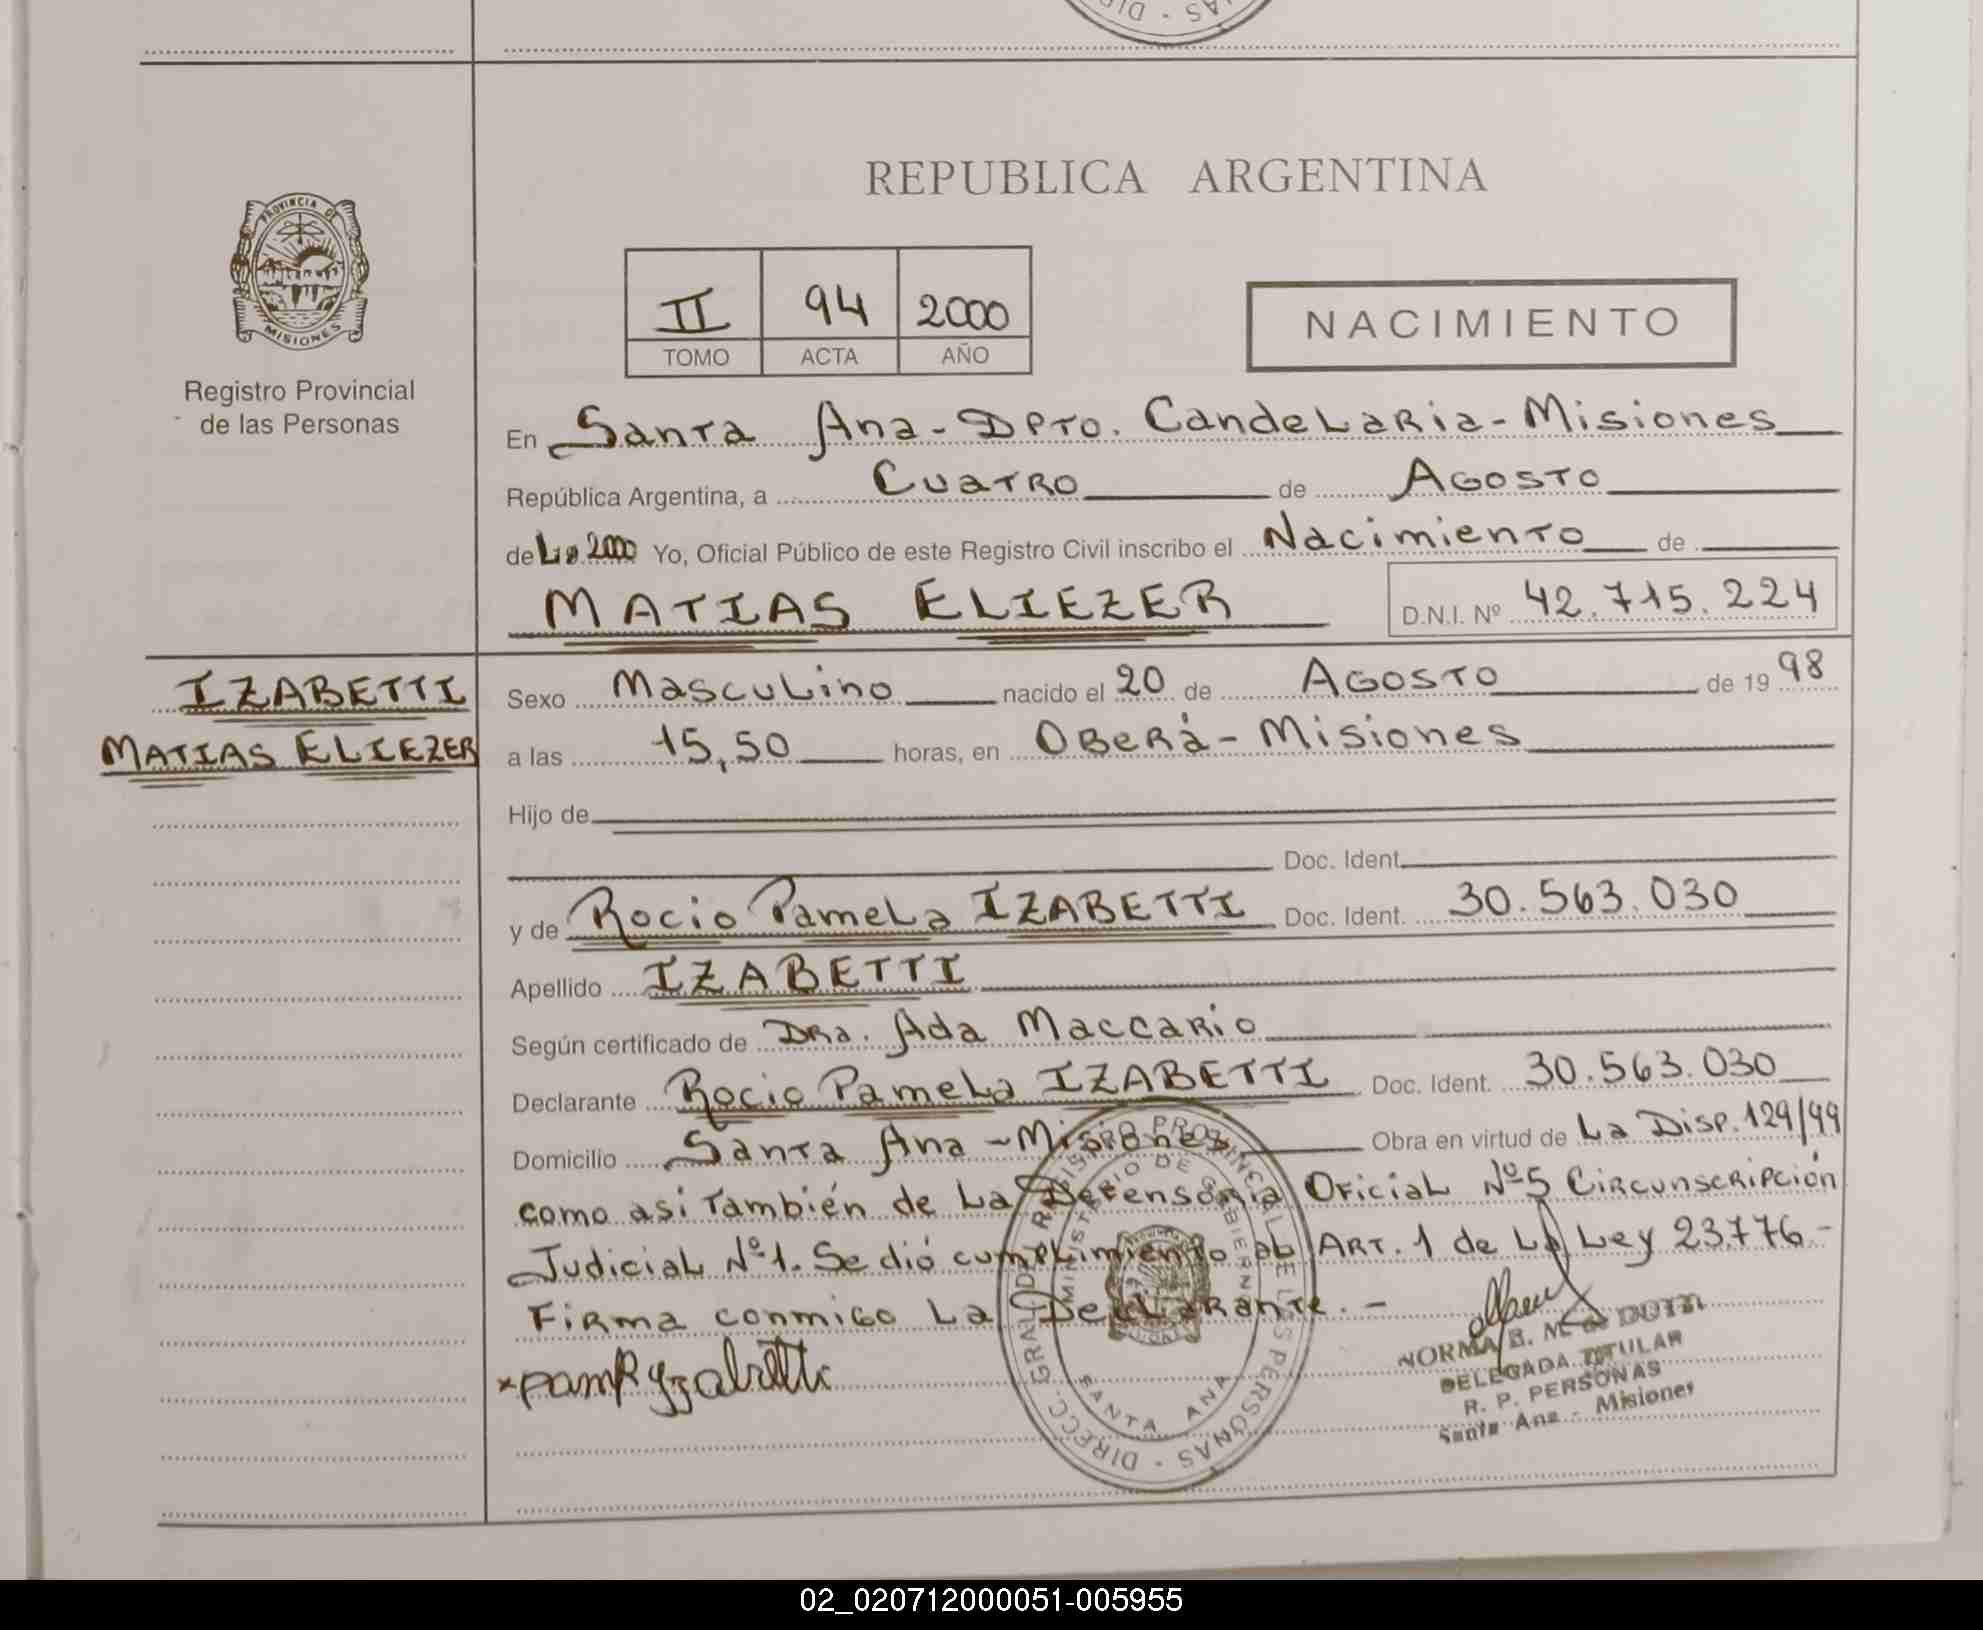 DIR - S AS
REPUBLICA ARGENTINA
PROVINCIA DE
MISIONES
Registro Provincial
de las Personas
II 94 2000
TOMO ACTA AÑO
NACIMIENTO
En Santa Ana - Dpto. Candelaria - Misiones
República Argentina, a Cuatro de Agosto
de L 2000 Yo, Oficial Público de este Registro Civil inscribo el Nacimiento de
MATIAS ELIEZER D.N.I. Nº 42.715.224
IZABETTI
MATIAS ELIEZER
Sexo Masculino nacido el 20 de Agosto de 19 98
a las 15,50 horas, en Oberá - Misiones
Hijo de
Doc. Ident.
y de Rocio Pamela IZABETTI Doc. Ident. 30.563.030
Apellido IZABETTI
Según certificado de Dra. Ada Maccario
Declarante Rocio Pamela IZABETTI Doc. Ident. 30.563.030
Domicilio Santa Ana - Misiones Obra en virtud de La Disp. 129/99
como asi También de La Defensoria Oficial Nº 5 Circunscripción
Judicial Nº 1. Se dió cumplimiento al Art. 1 de La Ley 23.776 -
Firma conmigo La Declarante. -
DIRECC. GRAL. DEL REGISTRO PROVINCIAL DE LAS PERSONAS -
MINISTERIO DE GOBIERNO
SANTA ANA
NORMA B. M. de
DELEGADA TITULAR
R. P. PERSONAS
Santa Ana - Misiones
02_020712000051-005955